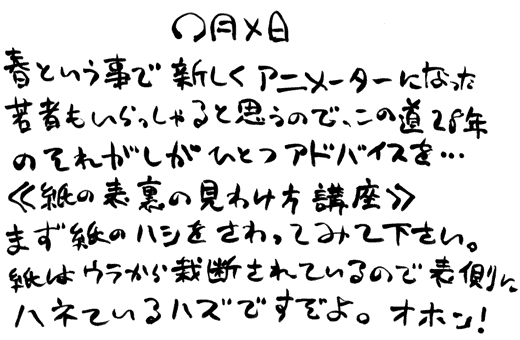 〇月×日
春という事で新しくアニメーターになった
若者もいらっしゃると思うので、この道28年
のそれがしがひとつアドバイスを…
《紙の表裏の見わけ方講座》
まず紙のハシをさわってみて下さい。
紙はウラから裁断されているので表側に
ハネているハズですぞよ。オホン!